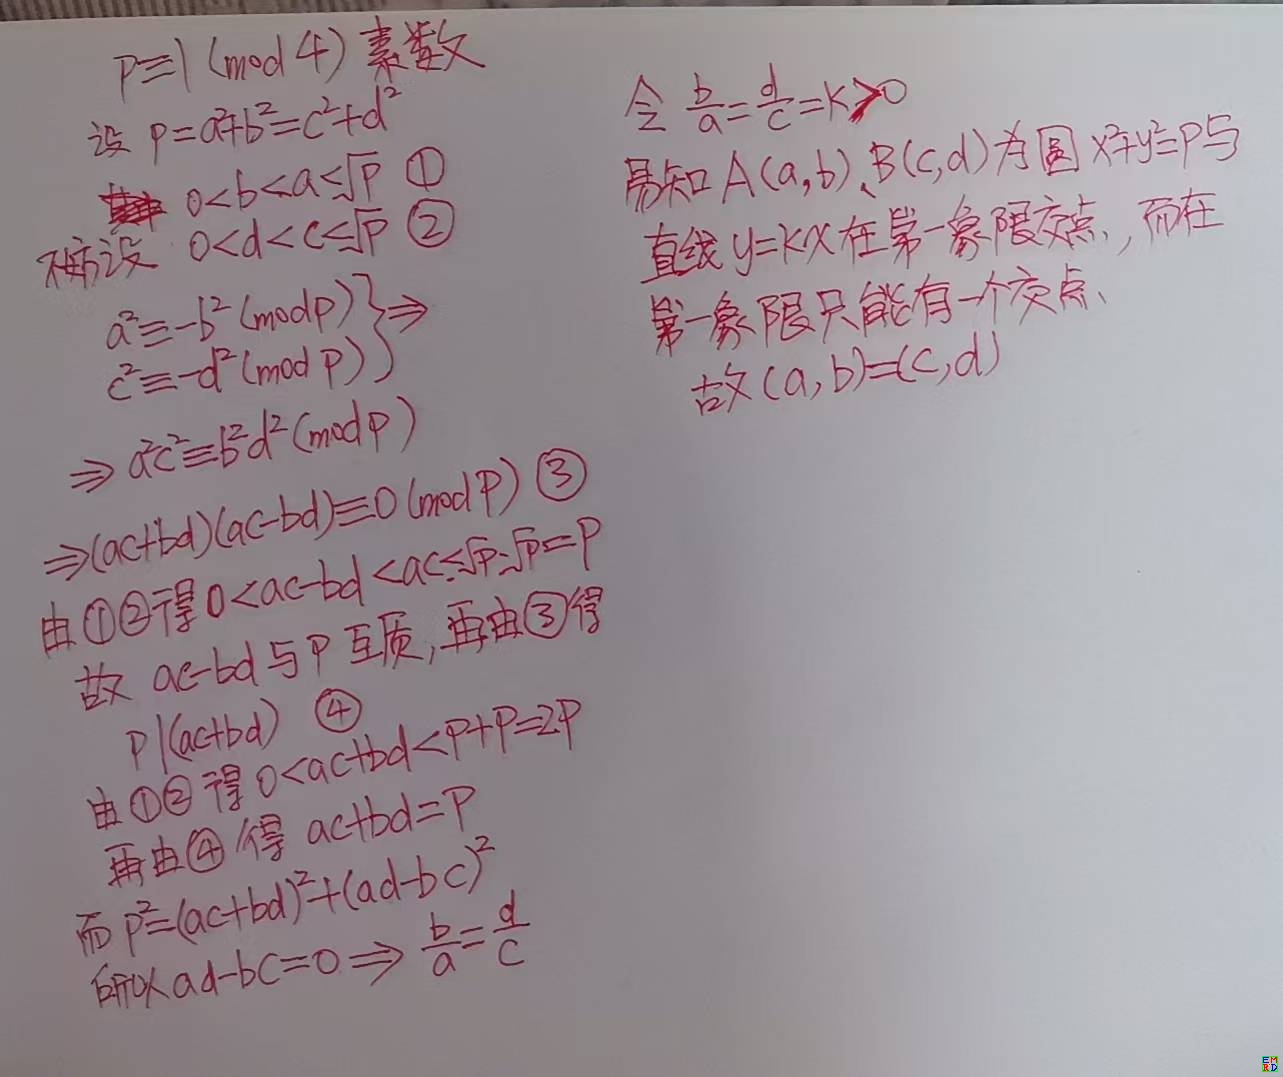 p≡1 (mod 4) 素数
设 p=a²+b²=c²+d²
0<b<a≤√p ①
不妨设 0<d<c≤√p ②
a²≡-b² (mod p) } ⇒
c²≡-d² (mod p)
⇒ a²c²≡b²d² (mod p)
⇒(ac+bd)(ac-bd)≡0 (mod p) ③
由①②得 0<ac-bd<ac≤√p·√p=p
故 ac-bd 与 p 互质, 再由③得
p|(ac+bd) ④
由①②得 0<ac+bd<p+p=2p
再由④得 ac+bd=p
而 p²=(ac+bd)²+(ad-bc)²
所以 ad-bc=0 ⇒ b/a=d/c
令 b/a=d/c=k>0
易知 A(a,b)、B(c,d) 为圆 x²+y²=p与
直线 y=kx 在第一象限交点, 而在
第一象限只能有一个交点、
故(a,b)=(c,d)
EM
RD